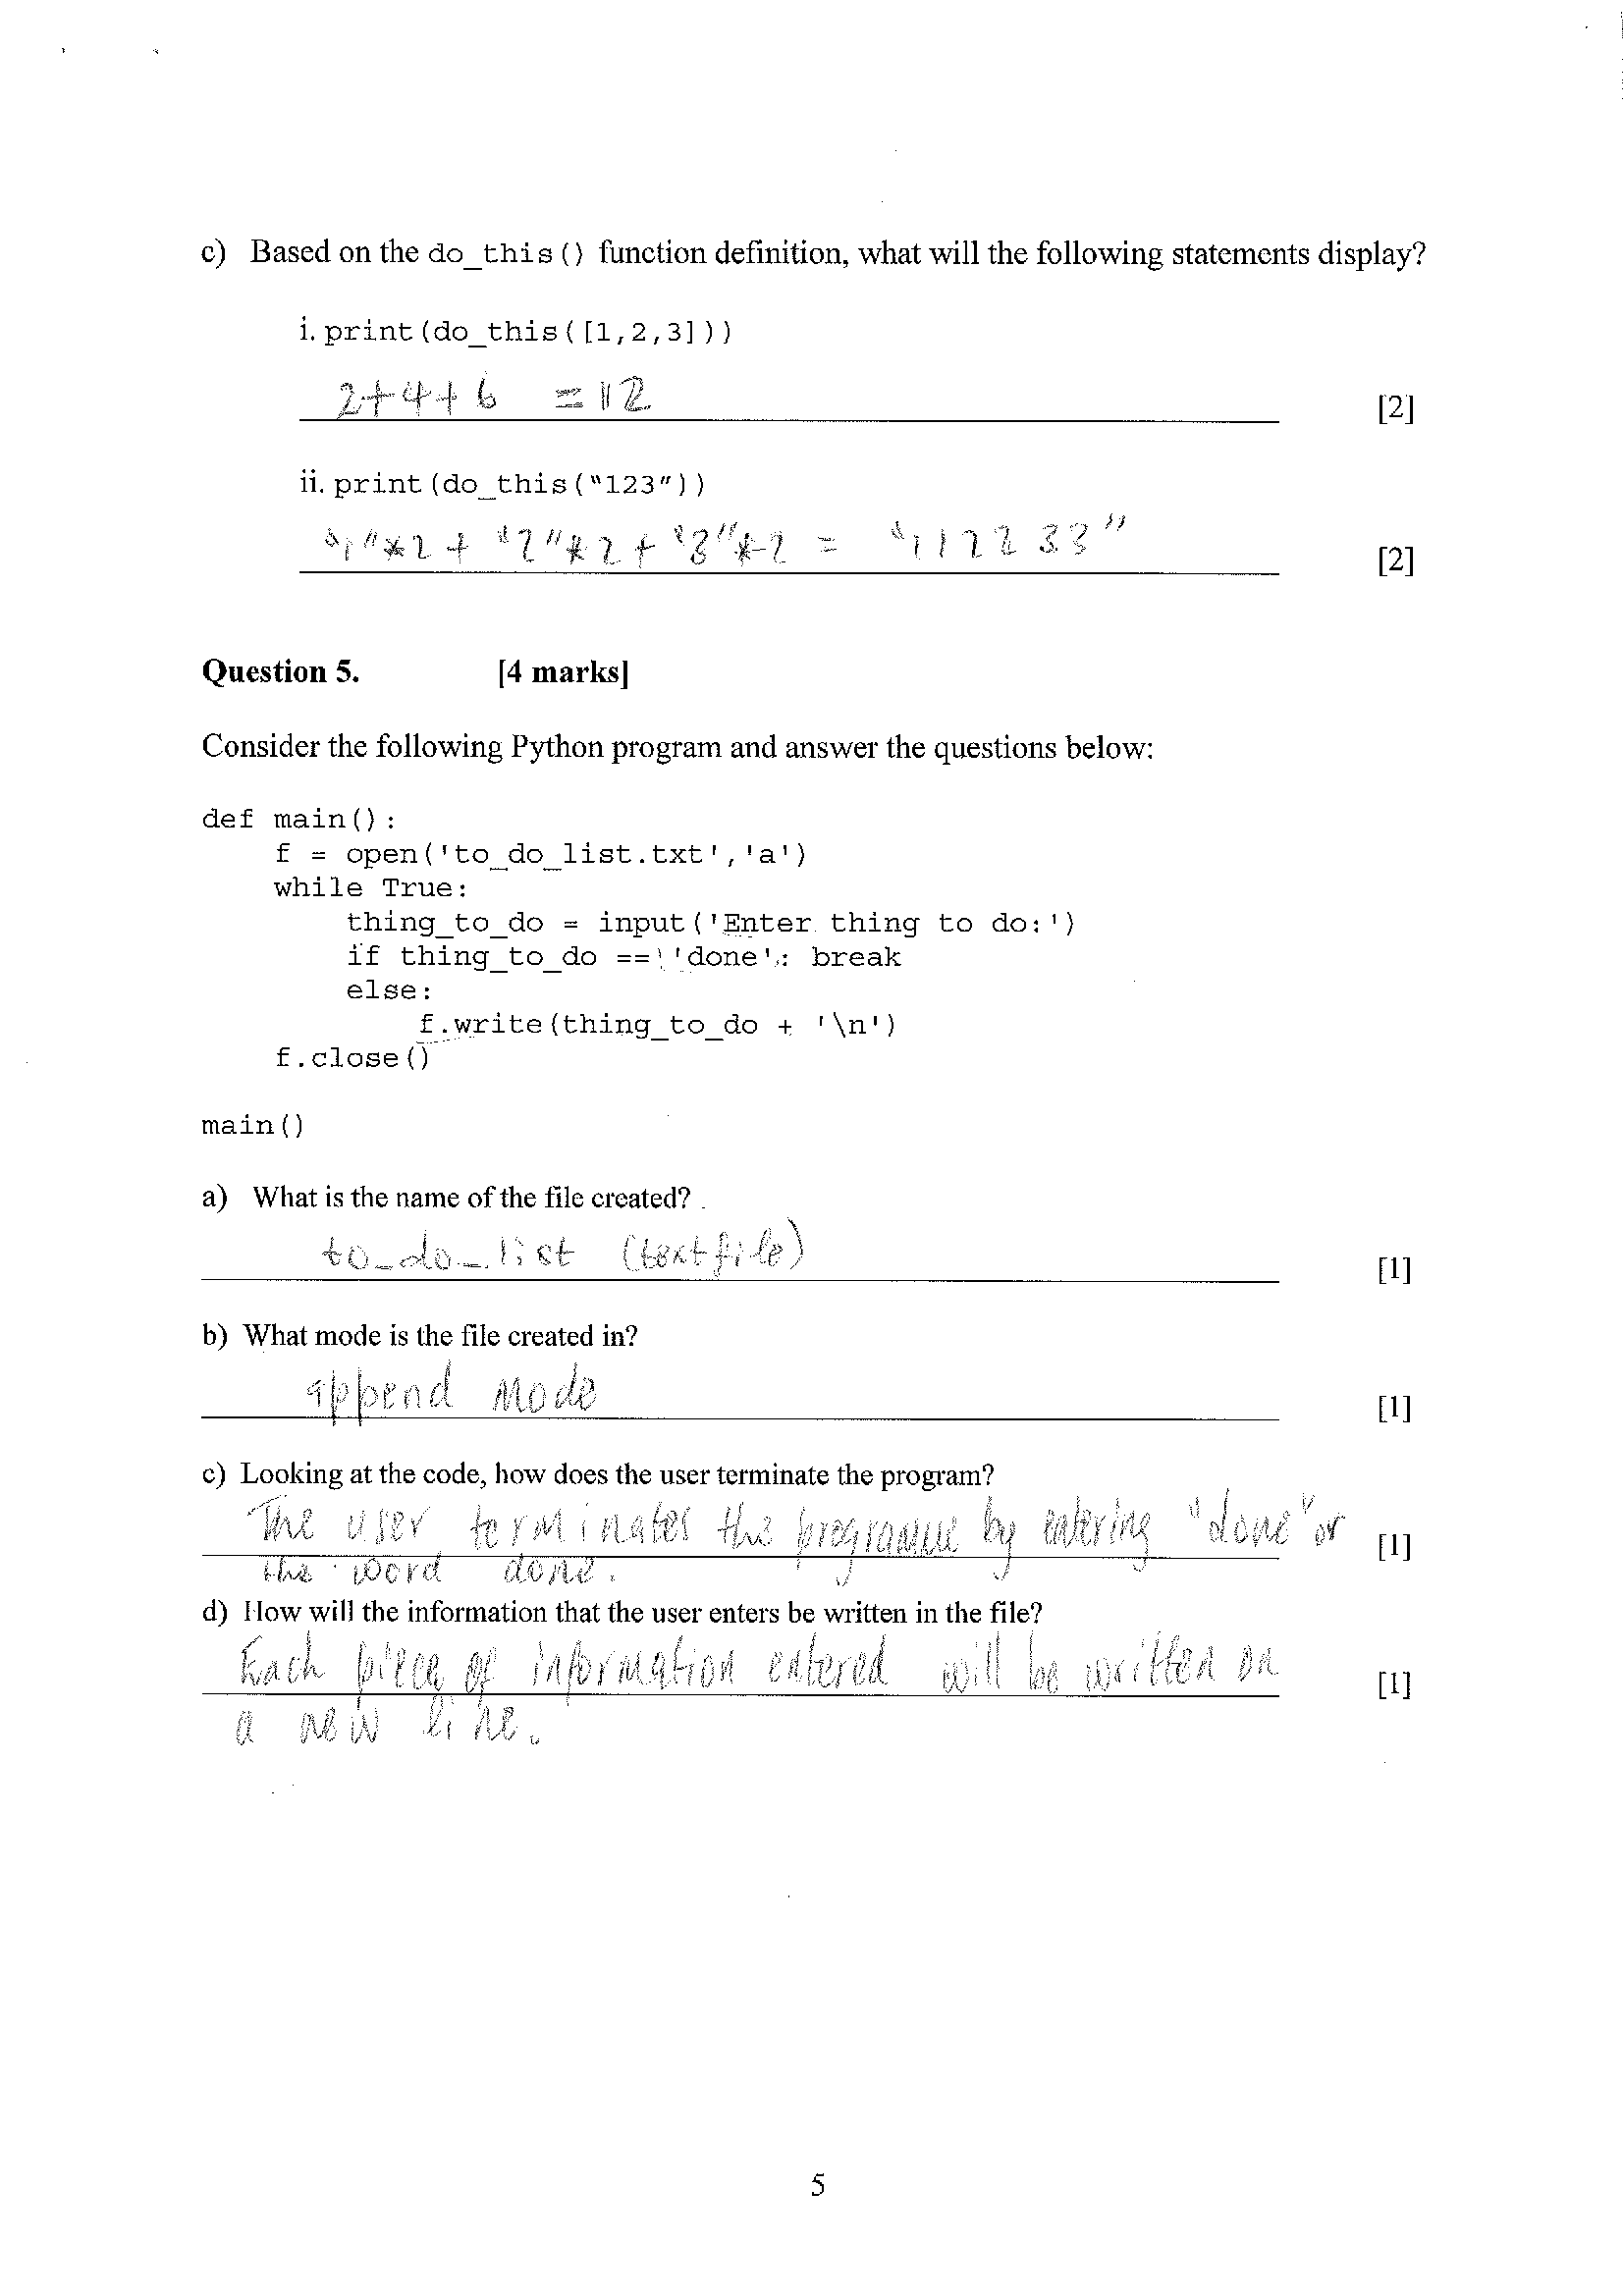 c) Based on the do_this() function definition, what will the following statements display?
i. print(do_this([1,2,3]))
2+4+6 =12
[2]
ii. print(do_this("123"))
"1"*2 + "2"*2 + "3"*2 = "112233"
[2]
Question 5. [4 marks]
Consider the following Python program and answer the questions below:
def main():
    f = open('to_do_list.txt','a')
    while True:
        thing_to_do = input('Enter thing to do:')
        if thing_to_do == 'done': break
        else:
            f.write(thing_to_do + '\n')
    f.close()
main()
a) What is the name of the file created?
to_do_list (textfile)
[1]
b) What mode is the file created in?
append mode
[1]
c) Looking at the code, how does the user terminate the program?
The user terminates the programme by entering "done" or
[1]
the word done.
d) How will the information that the user enters be written in the file?
Each piece of information entered will be written on
[1]
a new line.
5